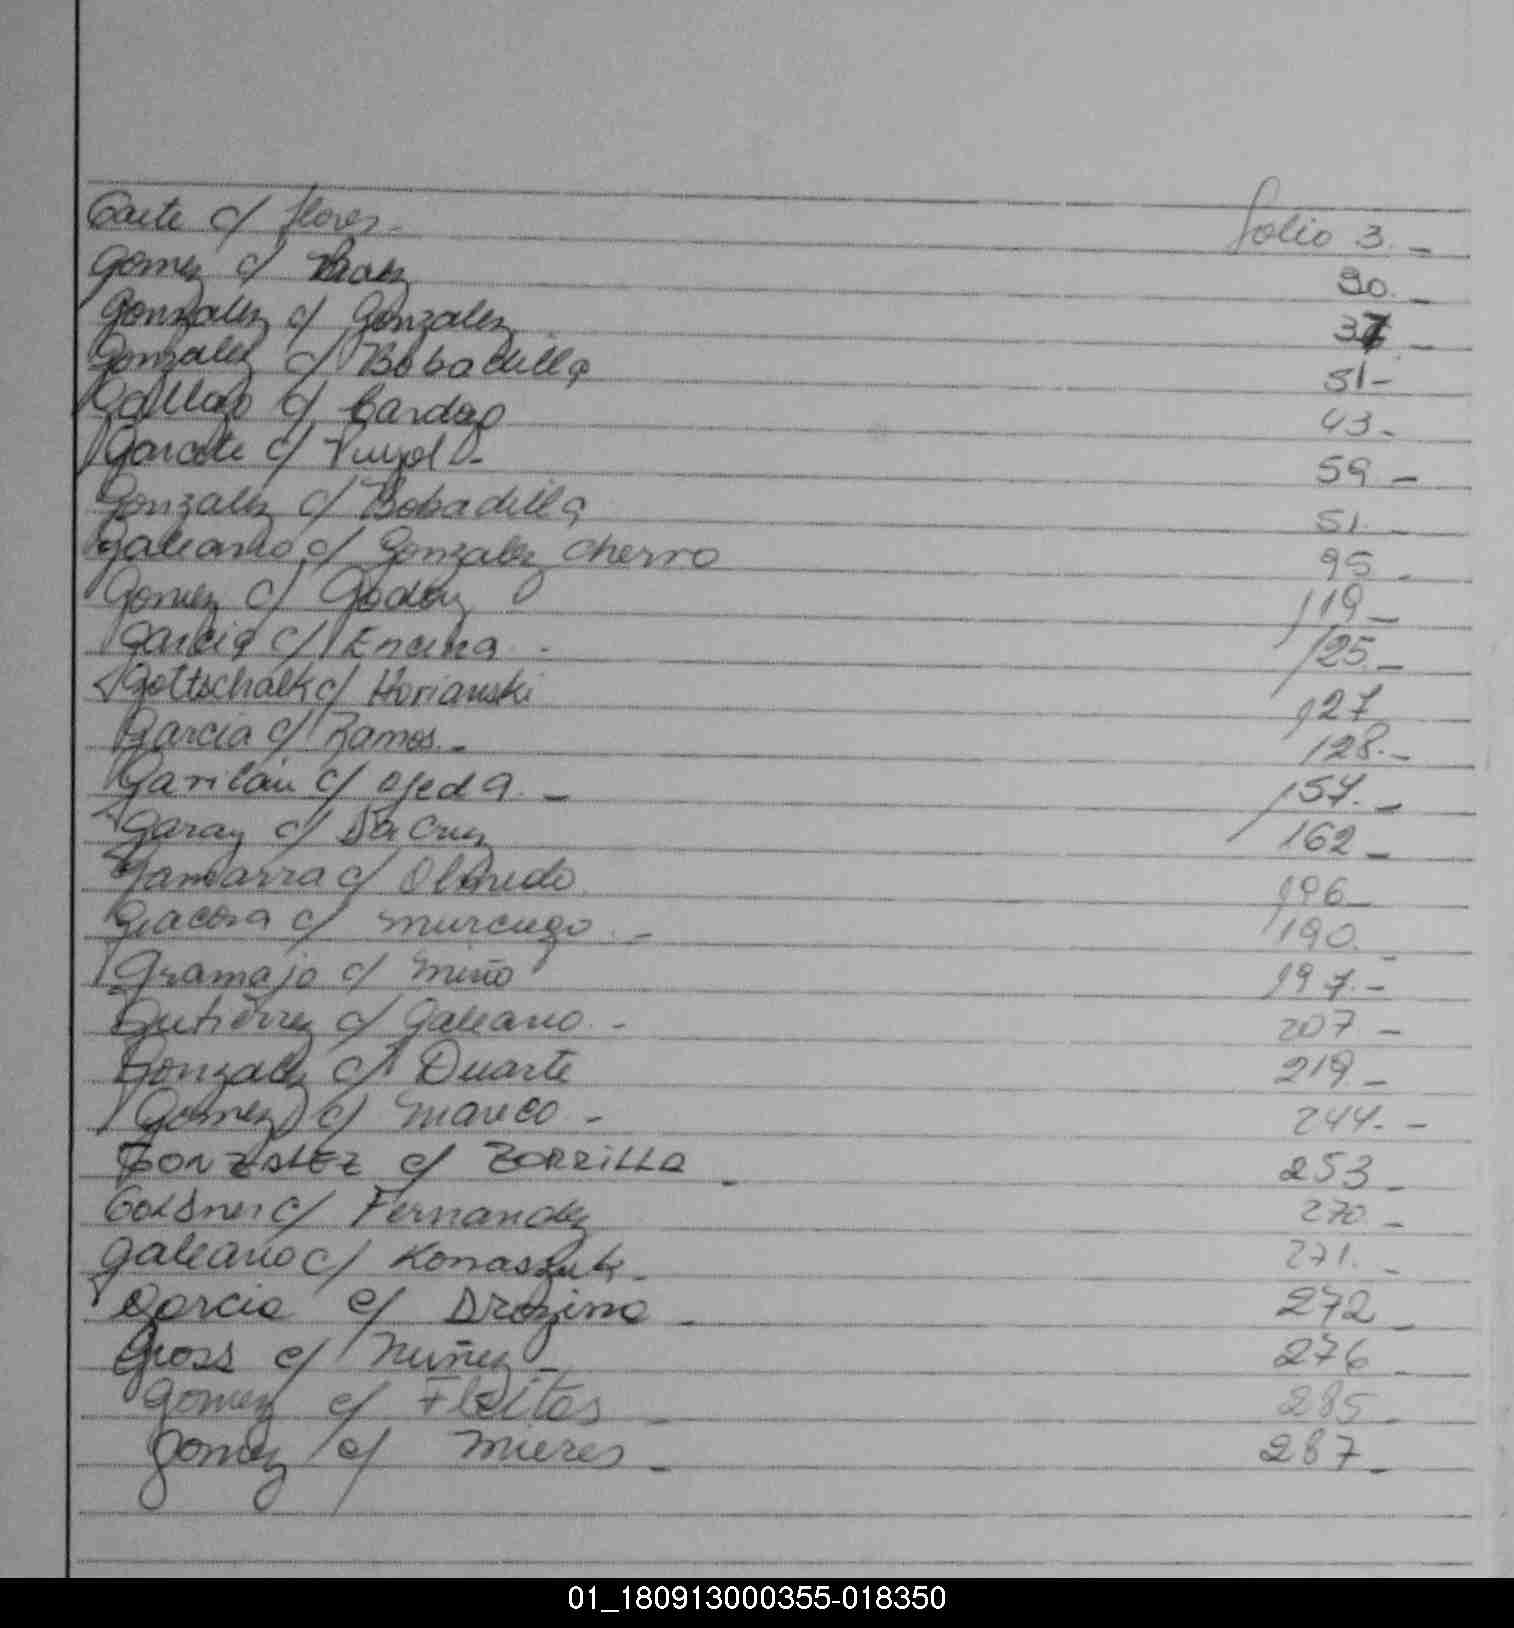 Gaete c/ flores - folio 3. -
Gomez c/ Baez 30. -
Gonzalez c/ Gonzalez 37 -
Gonzalez c/ Bobadilla 51 -
c/ Cardozo 43 -
Garcete c/ Puyol - 59 -
Gonzalez c/ Bobadilla 51. -
Galeano c/ Gonzalez Cherro 95 -
Gomez c/ Godoy 119 -
Garcia c/ Encina - 125. -
Gottschalk c/ Horianski 127
Garcia c/ Ramos. - 128. -
Garilan c/ Ojeda. - 157. -
Garay c/ Da Cruz 162 -
Gamarra c/ Olmedo 196 -
Giacosa c/ - 190. -
Gramajo c/ Miño 197. -
Gutierrez c/ Galeano. - 207 -
Gonzalez c/ Duarte 219 -
Gomez c/ Mareco - 244. -
GONZALEZ c/ ZORRILLA - 253 -
Goldner c/ Fernandez 270. -
Galeano c/ Konaszuk - 271. -
Garcia c/ - 272 -
Gross c/ Nuñez - 276 -
Gomez c/ Fleitas - 285 -
Gomez c/ Mieres - 287 -
01_180913000355-018350